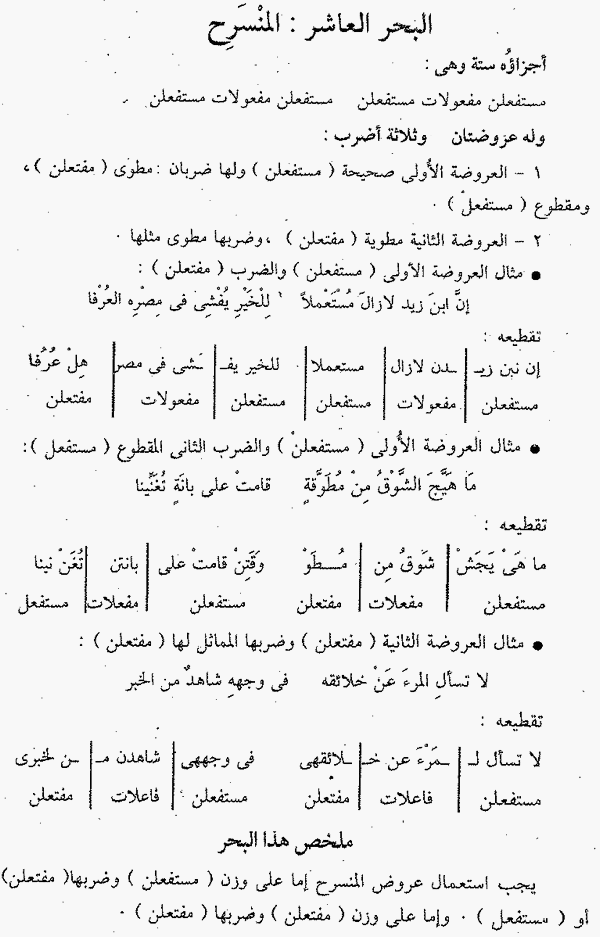 البحر العاشر : المنْسَرِح
أجزاؤُه ستة وهى :
مستفعلن مفعولات مستفعلن    مستفعلن مفعولات مستفعلن
وله عروضتان    وثلاثة أضرب :
١ – العروضة الأُولى صحيحة ( مستفعلن ) ولها ضربان : مطوى ( مفتعلن ) ،
ومقطوع ( مستفعلْ ) ٠
٢ – العروضة الثانية مطوية ( مفتعلن ) ، وضربها مطوى مثلها ٠
● مثال العروضة الأولى ( مستفعلن ) والضرب ( مفتعلن ) :
إنَّ ابنَ زيد لازالَ مُسْتَعْملاً    لِلْخَيْرِ يُفْشِى فى مِصْرِه العُرُفا
تقطيعه :
إن نبن زيـ | ـدن لازال | مستعملا | للخير يفـ | ـشى فى مصر | هِلْ عُرُفا
مستفعلن | مفعولات | مستفعلن | مستفعلن | مفعولات | مفتعلن
● مثال العروضة الأُولى ( مستفعلنْ ) والضرب الثانى المقطوع ( مستفعل ) :
مَا هَيَّجَ الشَّوْقُ مِنْ مُطَوَّقةٍ    قامتْ على بانَةٍ تُغَنِّينا
تقطيعه :
ما هَىْ يَجَشْ | شَوقُ مِن | مُـطَوْ وَقَتِنْ قامتْ على | بانتن | تُغَنْ نينا
مستفعلن | مفعلات | مفتعلن مستفعلن | مفعلات | مستفعل
● مثال العروضة الثانية ( مفتعلن ) وضربها المماثل لها ( مفتعلن ) :
لا تسألِ المرءَ عَنْ خلائقه    فى وجههِ شاهدٌ من الخبر
تقطيعه :
لا تسأل لـ | ـمَرْءَ عن خـ | ـلائقهى فى وجههى | شاهدن مـ | ـن لخبرى
مستفعلن | فاعلات | مفتعلن مستفعلن | فاعلات | مفتعلن
ملخص هذا البحر
يجب استعمال عروض المنسرح إما على وزن ( مستفعلن ) وضربها ( مفتعلن )
أو ( مستفعل ) ٠ وإما على وزن ( مفتعلن ) وضربها ( مفتعلن ) ٠